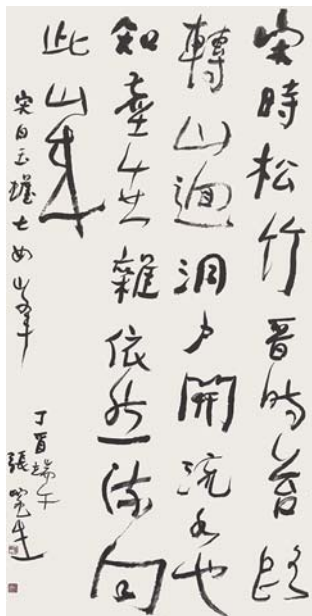 宋時松竹晉時苔路
轉山迴洞户開流水也
知塵世雜依然一向
此山來
宋白玉蟾七峰
丁酉端午
張